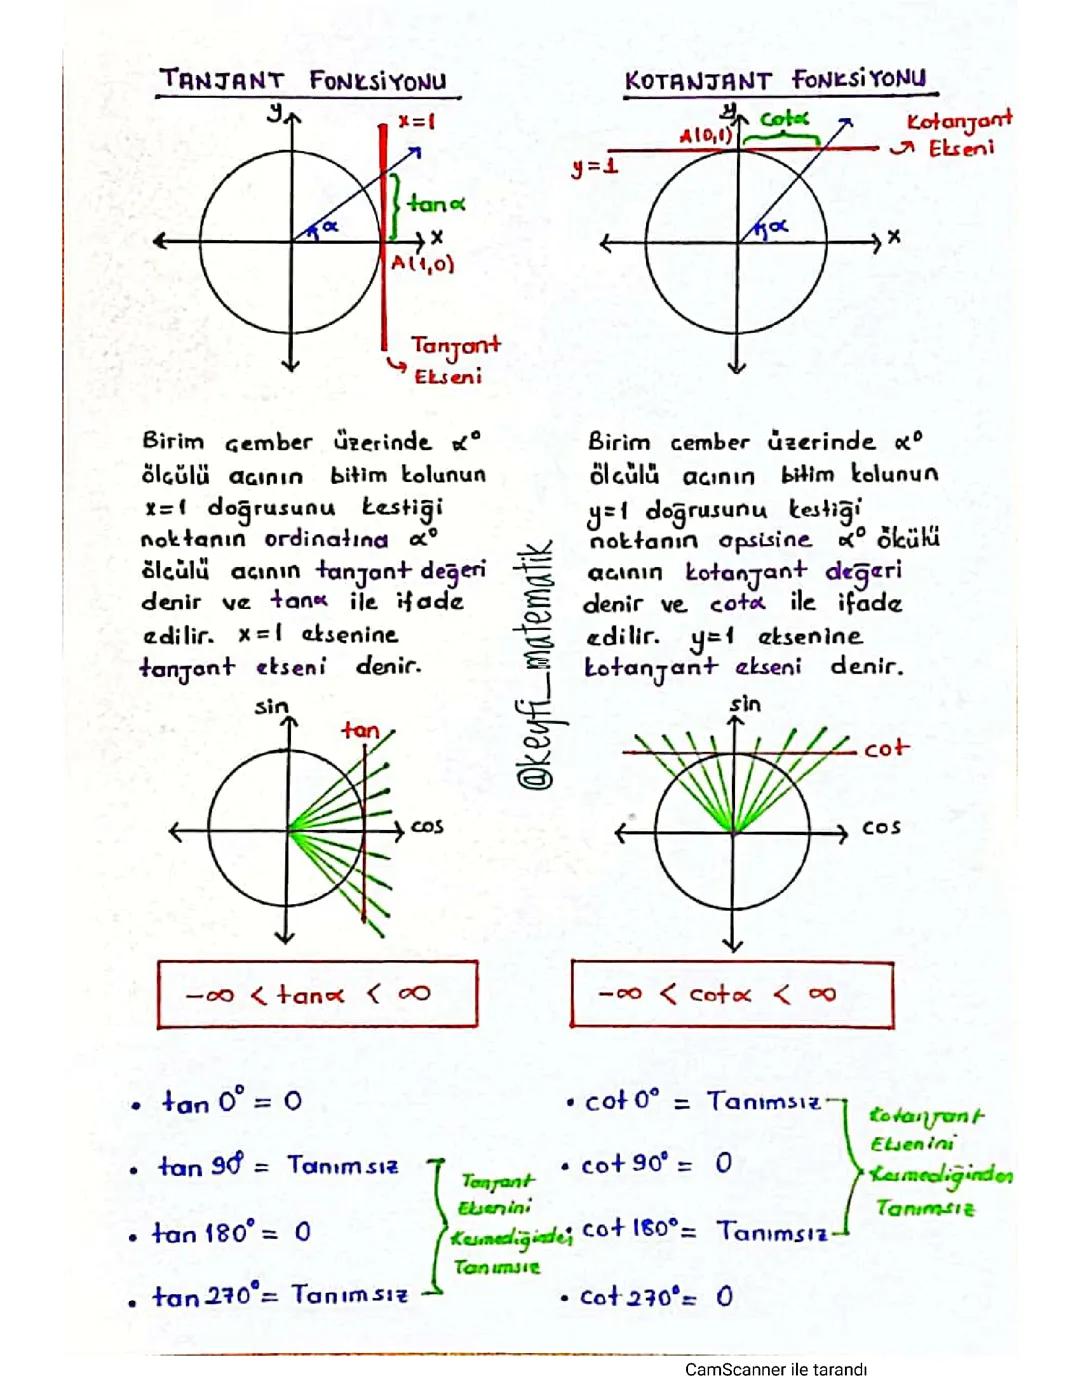 TANJANT FONKSİYONU
y
x=1
tanα
α
x
A(1,0)
Tanjant
Ekseni
Birim çember üzerinde α°
ölçülü açının bitim kolunun
x=1 doğrusunu kestiği
noktanın ordinatına α°
ölçülü açının tanjant değeri
denir ve tanα ile ifade
edilir. x=1 eksenine
tanjant ekseni denir.
sin
tan
cos
-∞ < tanα < ∞
• tan 0° = 0
• tan 90° = Tanımsız
• tan 180° = 0
• tan 270° = Tanımsız
Tanjant
Eksenini
Kesmediğinden
Tanımsız
@keyfi_matematik
KOTANJANT FONKSİYONU
y
cotα
A(0,1)
Kotanjant
Ekseni
y=1
α
x
Birim çember üzerinde α°
ölçülü açının bitim kolunun
y=1 doğrusunu kestiği
noktanın apsisine α° ökülü
açının kotanjant değeri
denir ve cotα ile ifade
edilir. y=1 eksenine
kotanjant ekseni denir.
sin
cot
cos
-∞ < cotα < ∞
• cot 0° = Tanımsız
• cot 90° = 0
• cot 180° = Tanımsız
• cot 270° = 0
Kotanjant
Eksenini
Kesmediğinden
Tanımsız
CamScanner ile tarandı